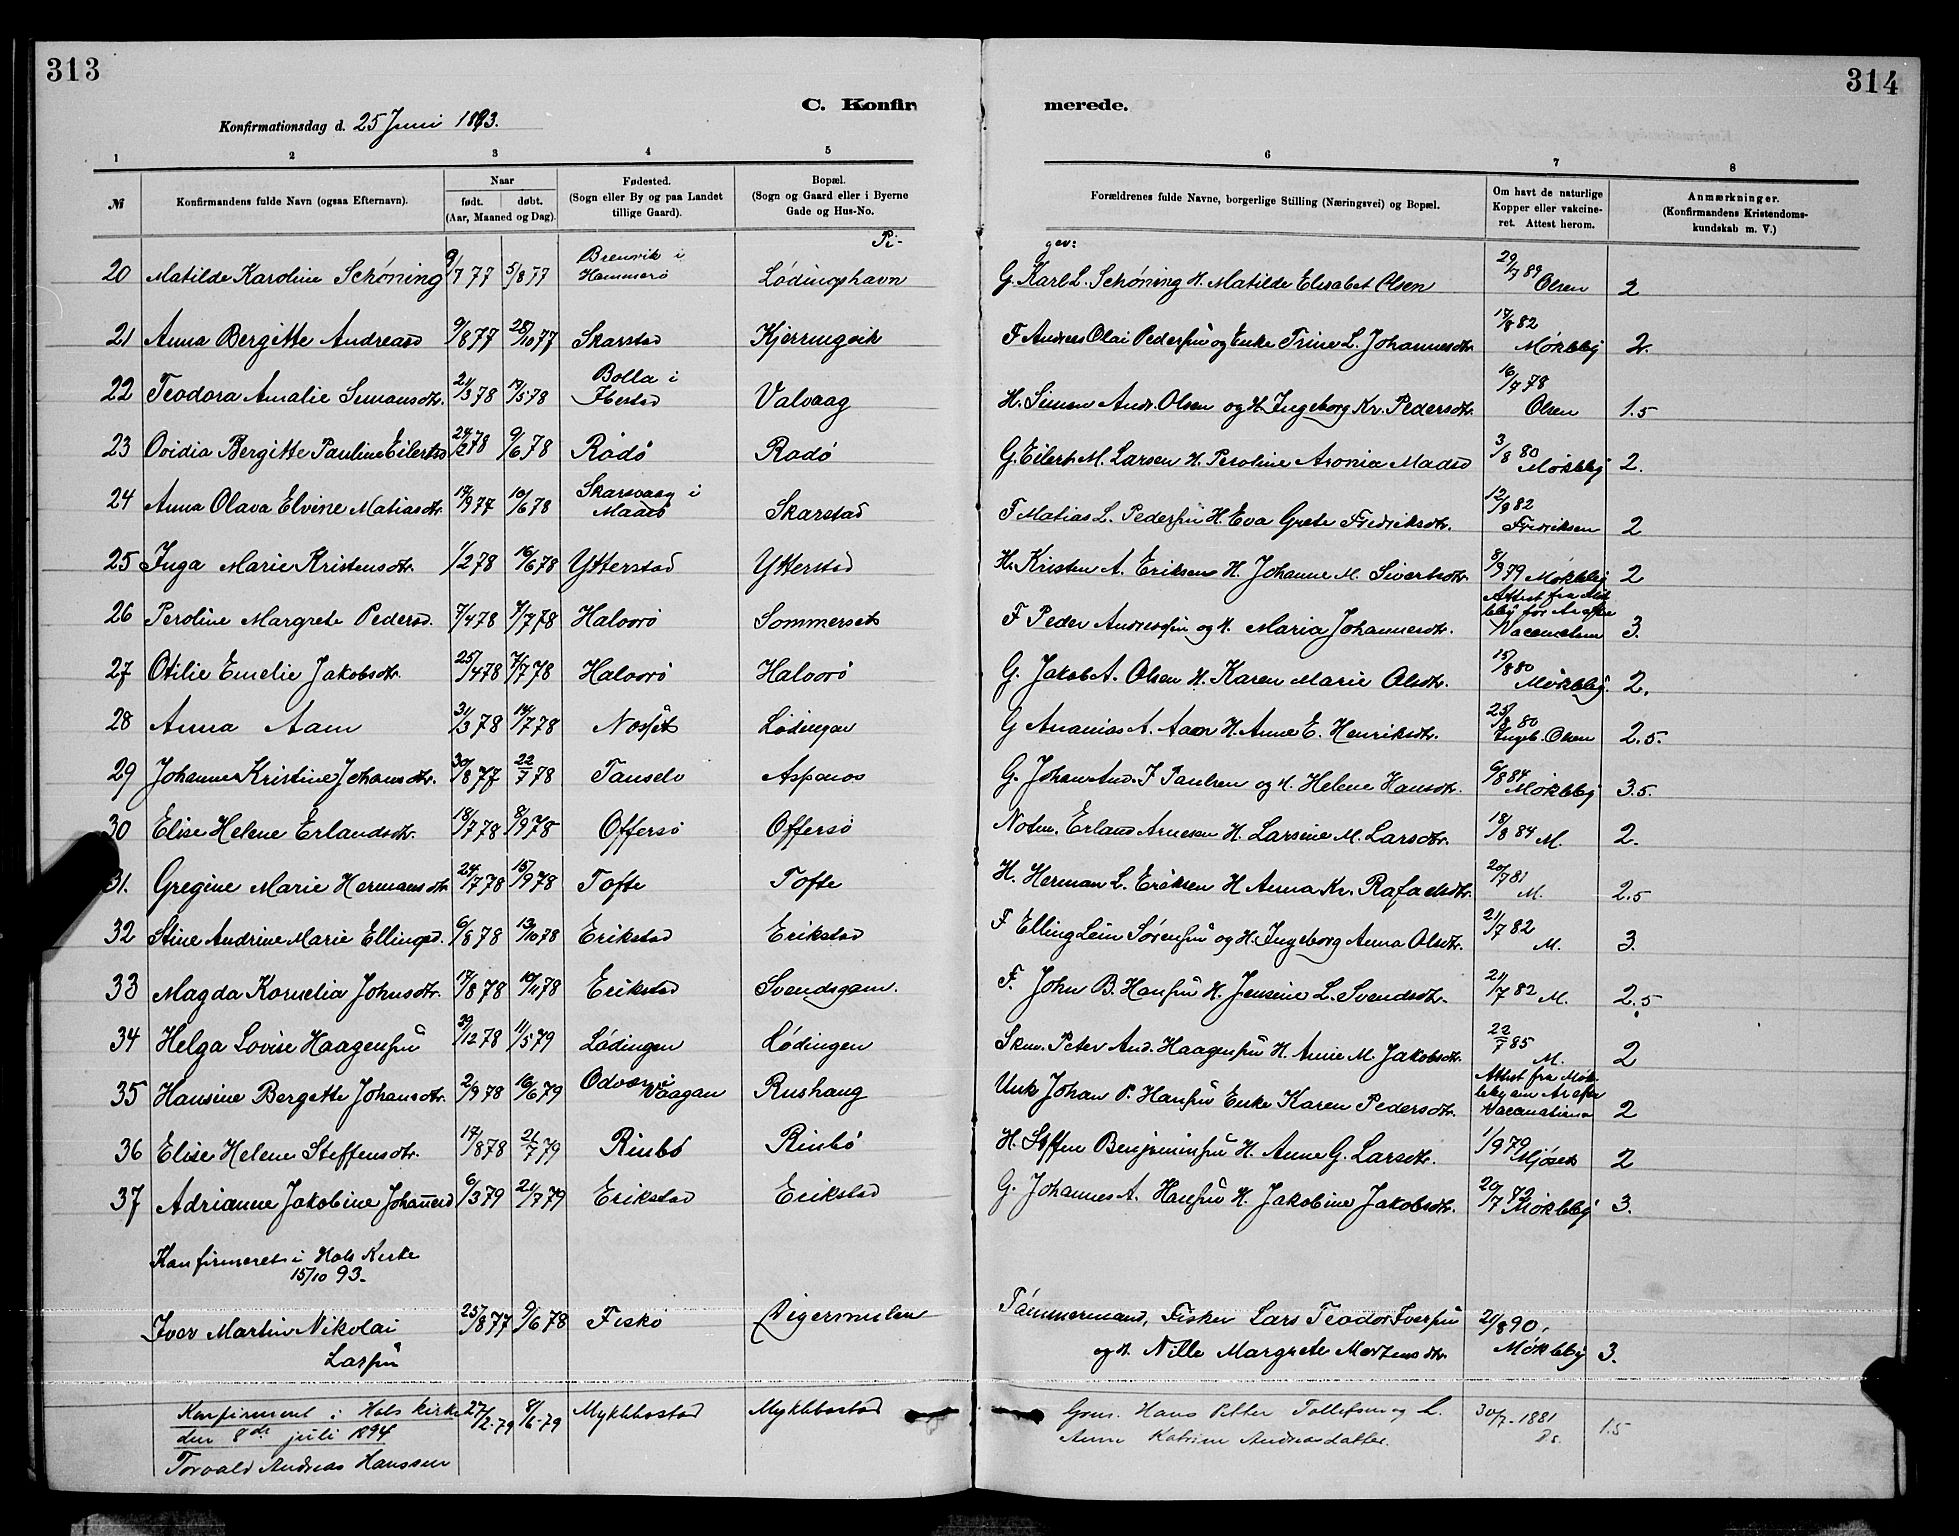 313
314
C. Konfir
merede.
Konfirmationsdag d. 25 Juni 1893.
1 2 3 4 5 6 7 8
№
Konfirmandens fulde Navn (ogsaa Efternavn).
Naar
født. døbt.
(Aar, Maaned og Dag).
Fødested.
(Sogn eller By og paa Landet
tillige Gaard).
Bopæl.
(Sogn og Gaard eller i Byerne
Gade og Hus-No.
Forældrenes fulde Navne, borgerlige Stilling (Næringsvei) og Bopæl.
Om havt de naturlige
Kopper eller vakcine-
ret. Attest herom.
Anmærkninger.
(Konfirmandens Kristendoms-
kundskab m. V.)
20 Matilde Karoline Schöning 9/7 77 5/8 77 Brenvik i Hammerö Lödingshavn G. Karl L. Schöning H. Matilde Elisabet Olsen 29/7 89 Olsen 2
21 Anna Bergitte Andreasd 9/8 77 28/10 77 Skarstad Kjerringvik F Andreas Olai Pedersen og Enke Trine L. Johannesdtr. 17/8 82 Möklebÿ 2.
22 Teodora Amalie Simonsdtr. 21/3 78 19/5 78 Bolla i Ibestad Valvaag H. Simon Andr. Olsen og H. Ingeborg Kr. Pedersdtr. 16/7 78 Olsen 1.5
23 Ovidia Bergitte Pauline Eilertsd 24/2 78 9/6 78 Rödö Rödö G. Eilert M. Larsen H. Peroline Aronia Madsd 3/8 80 Möklebÿ 2.
24 Anna Olava Elvine Matiasdtr. 14/9 77 10/6 78 Skarsvaag i Maasö Skarstad F Matias L. Pedersen H. Eva Grete Fredriksdtr. 12/9 82 Fredriksen 2
25 Inga Marie Kristensdtr. 1/2 78 16/6 78 Ytterstad Ytterstad H. Kristen A. Eriksen H. Johanne M. Sivertsdtr. 8/9 79 Möklebÿ 2
26 Peroline Margrete Pedersd. 7/4 78 7/7 78 Halvorö Sommerset F Peder Andreassen og H. Maria Johannesdtr. Attest fra Möklebÿ 3.
27 Otilie Emelie Jakobsdtr. 25/4 78 7/7 78 Halvorö Halvorö G. Jakob A. Olsen H. Karen Marie Olsdtr. 15/8 80 Möklebÿ. 2.
28 Anna Aam 31/3 78 14/7 78 Lödingen G Ananias A. Aam H. Anne E. Henriksdtr. 25/8 80 Ingeb. Olsen 2.5.
29 Johanne Kristine Johansdtr. 30/8 77 22/7 78 Tanselv G. Johan And. J Paulsen og H. Helene Hansdtr. 6/8 84 Möklebÿ 3.5.
30 Elise Helene Erlandsdtr. 18/7 78 8/9 78 Offersö Offersö Notm. Erland Arnesen H. Larsine M. Larsdtr. 18/8 84 M. 2.
31. Gregine Marie Hermansdtr 24/7 78 15/9 78 Tofte Tofte H. Herman L. Eriksen H Anna Kr. Rafaelsdtr. 20/7 81 M. 2.5
32 Stine Andrine Marie Ellingsd. 6/8 78 13/10 78 Erikstad Erikstad F Elling Lein Sörensen og H. Ingeborg Anna Olsdtr. 21/7 82 M. 3.
33 Magda Kornelia Johnsdtr. 17/8 78 10/11 78 Erikstad Svendsgam. F. John B. Hansen H. Jensine L. Svendsdtr. 21/7 82 M. 2.5
34 Helga Lovise Haagensen 29/12 78 11/5 79 Lödingen Lödingen Skm. Peter And. Haagensen H. Anne M. Jakobsdtr. 22/7 85 M. 2
35 Hansine Bergette Johansdtr. 2/9 78 16/6 79 Odvær i Vaagan Rushaug Unk Johan P. Hansen Enke Karen Pedersdtr. Attest fra Möklebÿ 2
36 Elise Helene Steffensdtr. 17/8 78 21/7 79 Rinbö Rinbö H. Steffen Benjaminsen H. Anne G. Larsdtr. 1/9 79 Mjöset 2
37 Adrianne Jakobine Johannesd 6/3 79 21/7 79 Erikstad Erikstad G. Johannes A. Hansen H. Jakobine Jakobsdtr. 20/7 Möklebÿ 3.
Konfirmeret i Hols Kirke
15/10 93.
Iver Martin Nikolai Larsen 25/8 77 9/6 78 Fiskö Digermulen Tömmermand, Fisker Lars Teodor Iversen og H. Nille Margrete Mortensdtr. 21/8 90. Möklebÿ 3.
Konfirmeret i Hols kirke
den 8de juli 1894
Torvald Andreas Hanssen 27/2-79 8/6-79 Myklebostad Myklebostad Grm. Hans Petter Tollefsen og L. Anne Katrine Andreasdatter. 30/7-1881 1.5